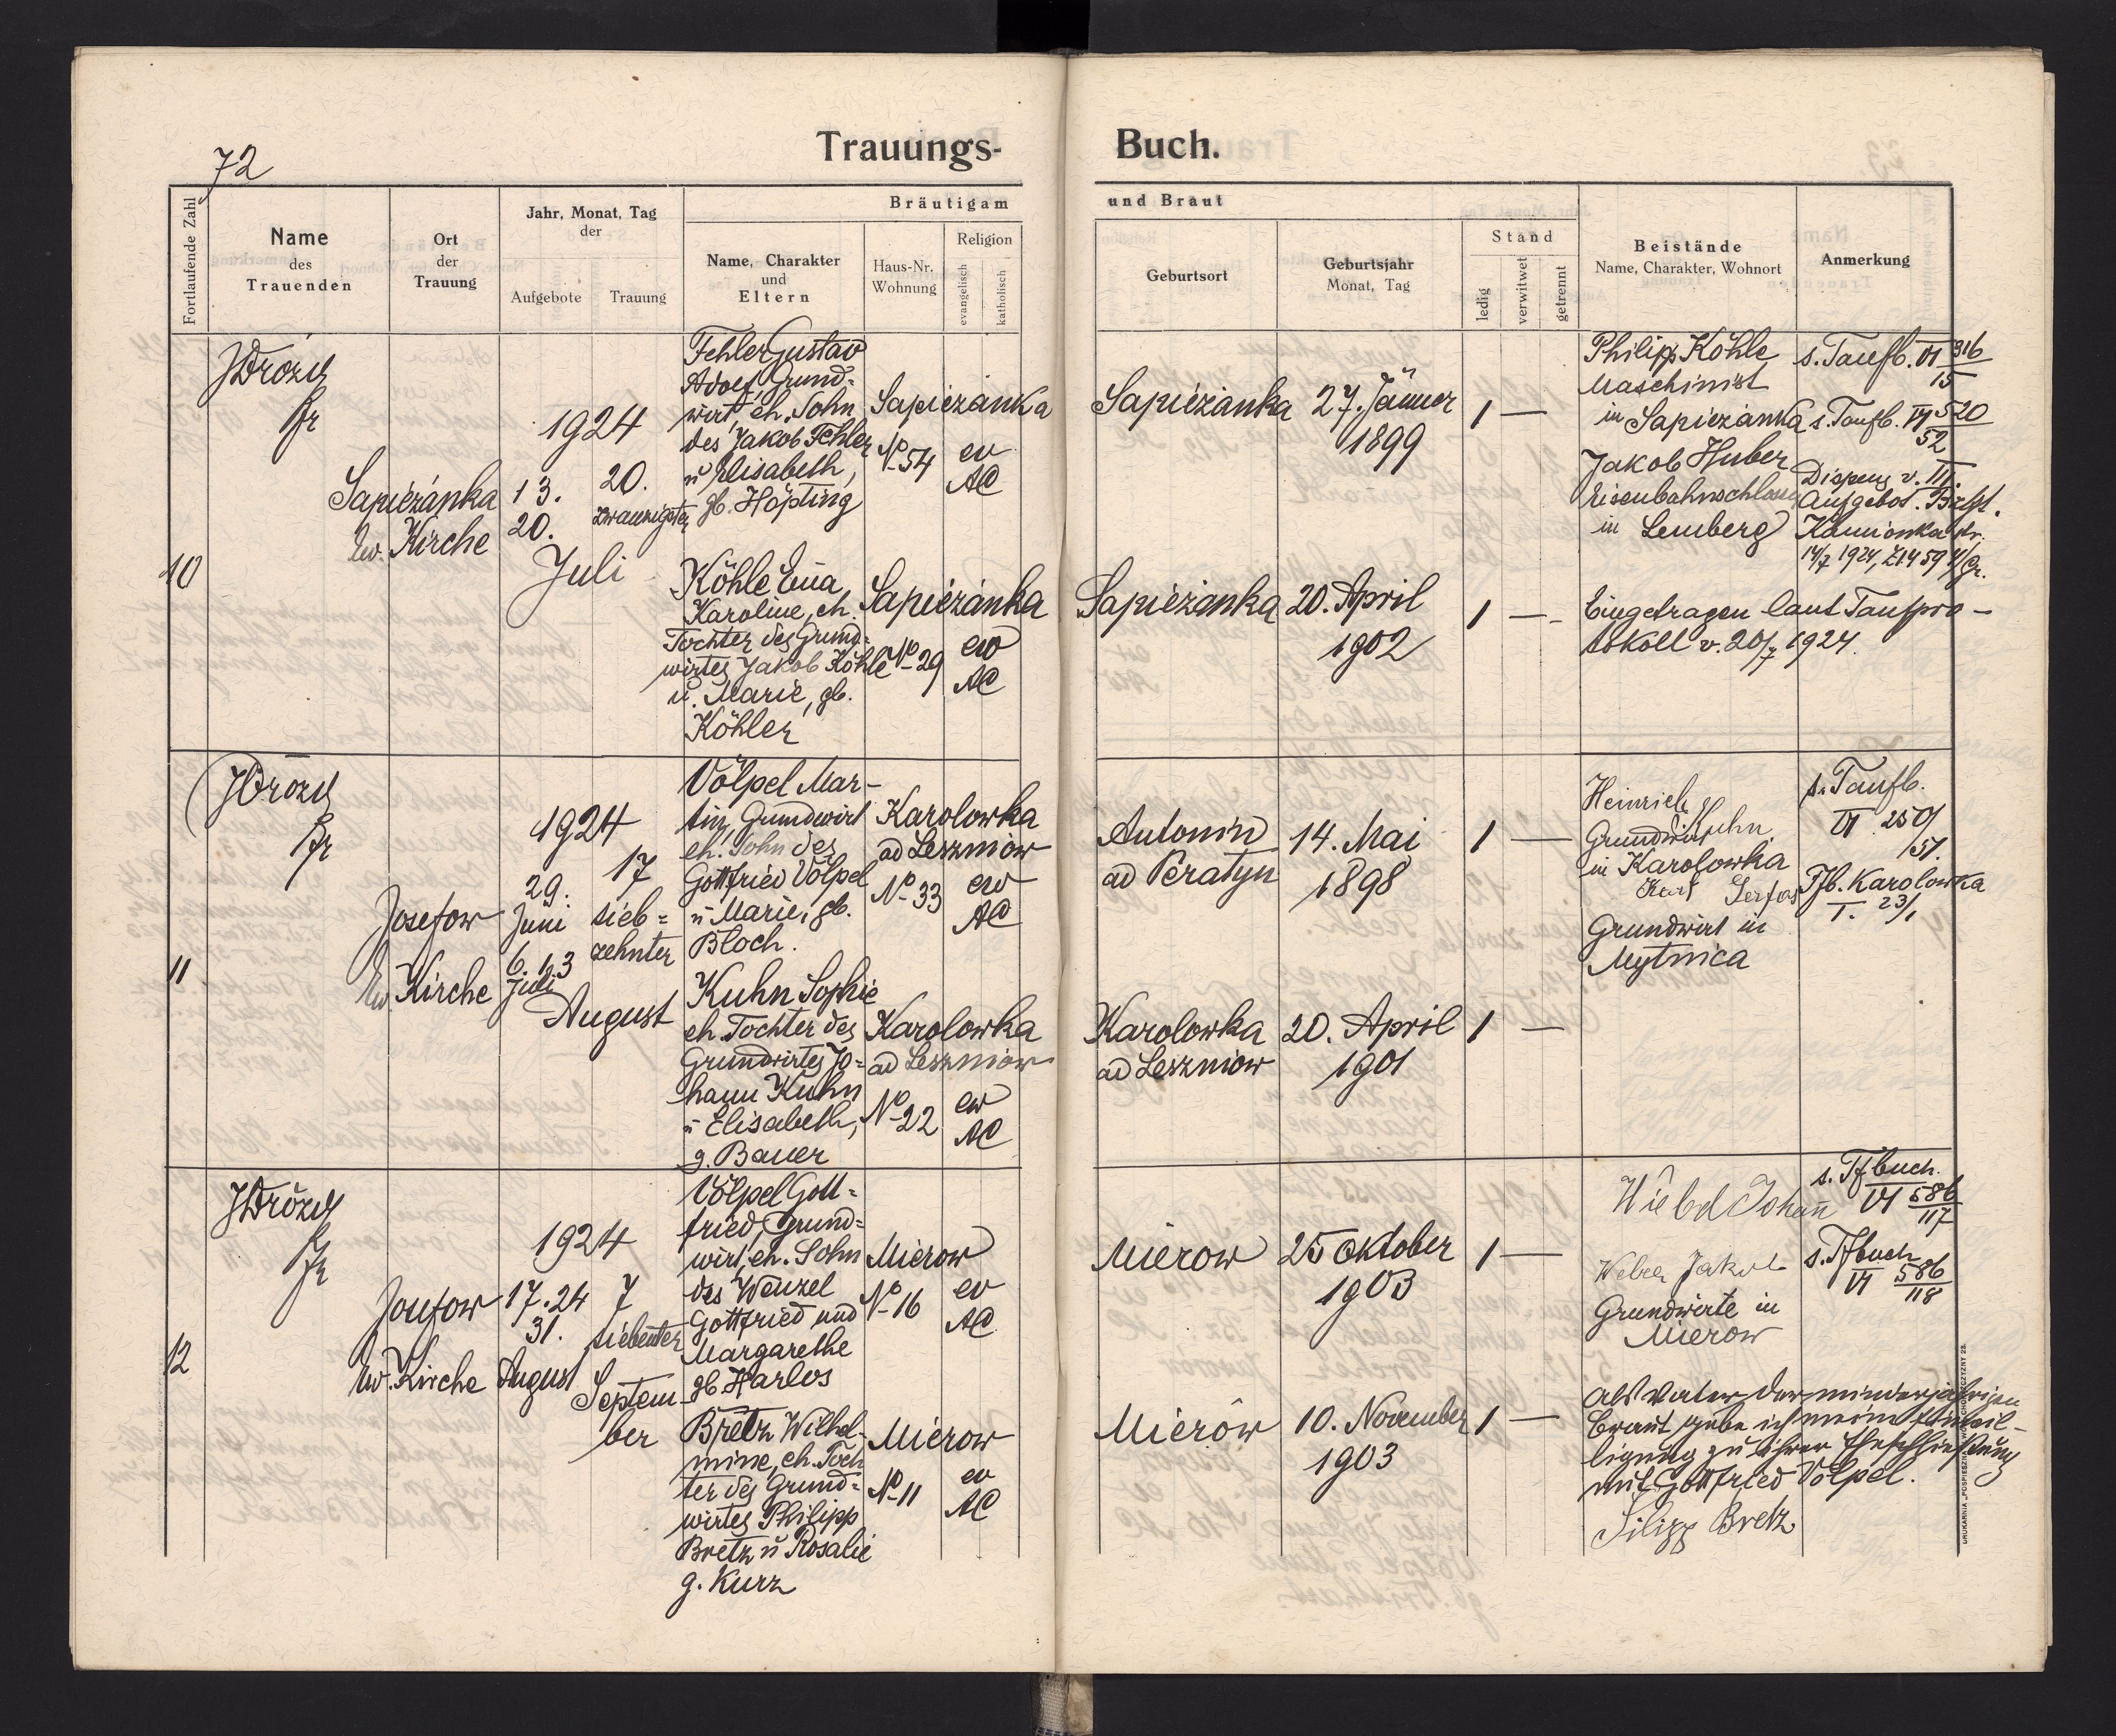 72
Trauungs-
Buch.
Fortlaufende Zahl
Name
des
Trauenden
Ort
der
Trauung
Jahr, Monat, Tag
der
Aufgebote
Trauung
Bräutigam
Name, Charakter
und
Eltern
Haus-Nr.
Wohnung
Religion
evangelisch
katholisch
und Braut
Geburtsort
Geburtsjahr
Monat, Tag
Stand
ledig
verwitwet
getrennt
Beistände
Name, Charakter, Wohnort
Anmerkung
10
JDrozd
Sapiezanka
ev. Kirche
1924
13.
20.
20.
zwanzigster
Juli
Fehler Gustav
Adolf, Grund-
wirt, eh. Sohn
des Jakob Fehler
u Elisabeth,
gb. Höpting
Sapiezanka
No 54
ev
AC
Sapiezanka
27. Jänner
1899
1 —
Philipp Köhle
Maschinist
in Sapiezanka
Jakob Huber
in Lemberg
s. Taufb. VI 316
15
s. Taufb. VI 520
52
Dispens v. III.
Aufgebot. Bzhpt.
Kamionka str.
14/7 1924, Z 14597/Gr.
Köhle Eva
Karoline, eh.
Tochter des Grund-
wirtes Jakob Köhle
u. Marie, gb.
Köhler
Sapiezanka
No 29
ev
AC
Sapiezanka
20. April
1902
1 —
Eingetragen laut Taufpro-
tokoll v. 20/7 1924.
11
JDrozd
Josefow
ev. Kirche
1924
29.
Juni
6. 13
Juli
17
sieb-
zehnter
August
Völpel Mar-
tin, Grundwirt
eh. Sohn des
Gottfried Völpel
u Marie, gb.
Bloch.
Karolowka
ad Leszniow
No 33
ev
AC
Antonin
ad Peratyn
14. Mai
1898
1 —
Heinrich Kuhn
Grundwirt
in Karolowka
Karl Serfas
Grundwirt in
Mytnica
s. Taufb.
VI 250/
51.
Tfb. Karolowka
I. 23/1
Kuhn Sophie
eh. Tochter des
Grundwirtes Jo-
hann Kuhn
u Elisabeth,
g. Bauer
Karolowka
ad Leszniow
No 22
ev
AC
Karolowka
ad Leszniow
20. April
1901
1 —
12
JDrozd
Josefow
ev. Kirche
1924
17. 24
31.
August
7
siebenter
Septem-
ber
Völpel Gott-
fried, Grund-
wirt, eh. Sohn
des Wenzel
Gottfried und
Margarethe
gb. Harlos
Mierow
No 16
ev
AC
Mierow
25 Oktober
1903
1 —
Johann
Weber Jakob
Grundwirte in
Mierow
s. Tfbuch.
VI 586
117
s. Tfbuch
VI 586
118
Bretz Wilhel-
mine, eh. Toch
ter des Grund-
wirtes Philipp
Bretz u Rosalie
g. Kurz
Mierow
No 11
ev
AC
Mierów
10. November
1903
1 —
Als Vater der minderjährigen
Braut gebe ich meine Einwil-
ligung zu ihrer Eheschließung
mit Gottfried Völpel.
Filipp Bretz